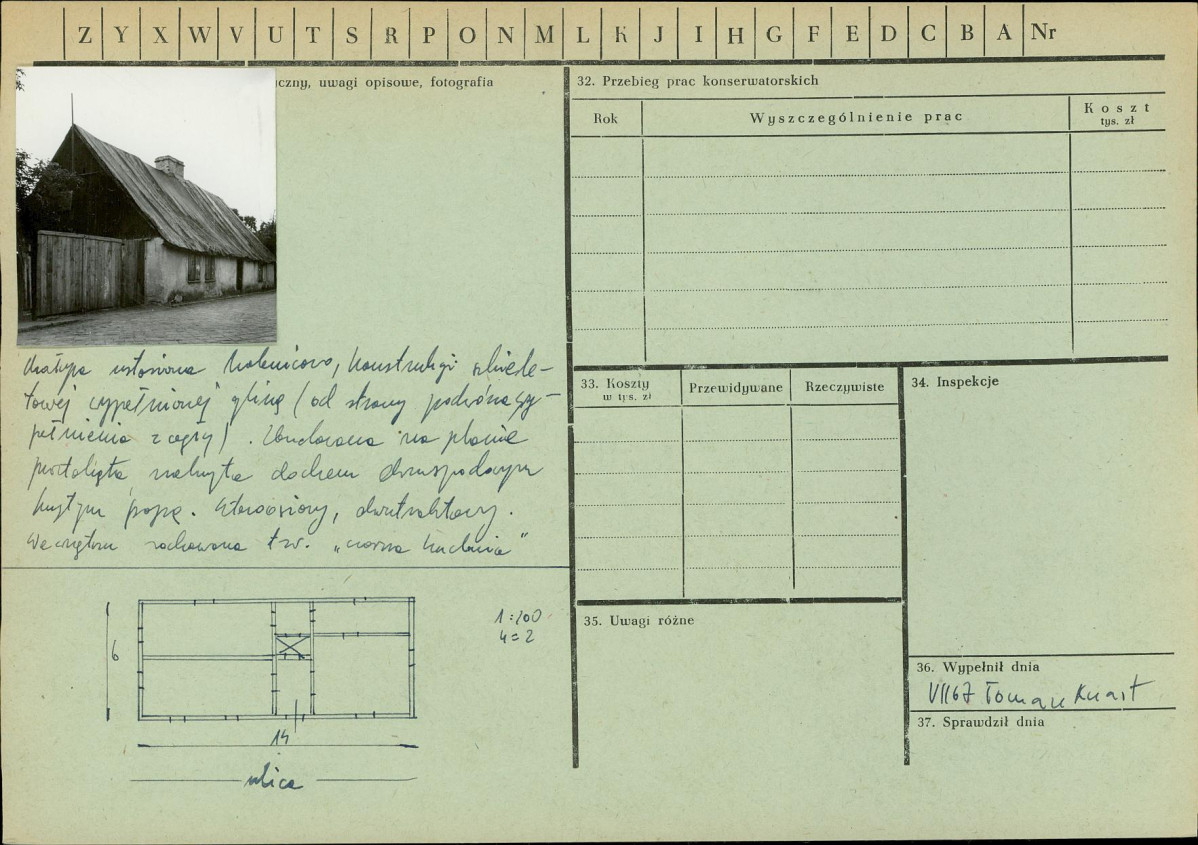 Z Y X W V U T S R P O N M L K J I H G F E D C B A Nr
czny, uwagi opisowe, fotografia
Chałupa ustawiona kalenicowo, konstrukcji szkiele-
towej wypełnionej gliną (od strony podwórza wy-
pełnienie z cegły). Zbudowana na planie
prostokąta nakryta dachem dwuspadowym
krytym papą. Szerokofrontowy, dwutraktowy.
Wewnątrz zachowana tzw. „czarna kuchnia"
1:200
4=2
6
14
ulica
32. Przebieg prac konserwatorskich
Rok
Wyszczególnienie prac
Koszt
tys. zł
33. Koszty
w tys. zł
Przewidywane
Rzeczywiste
34. Inspekcje
35. Uwagi różne
36. Wypełnił dnia
VII 67 Roman
37. Sprawdził dnia